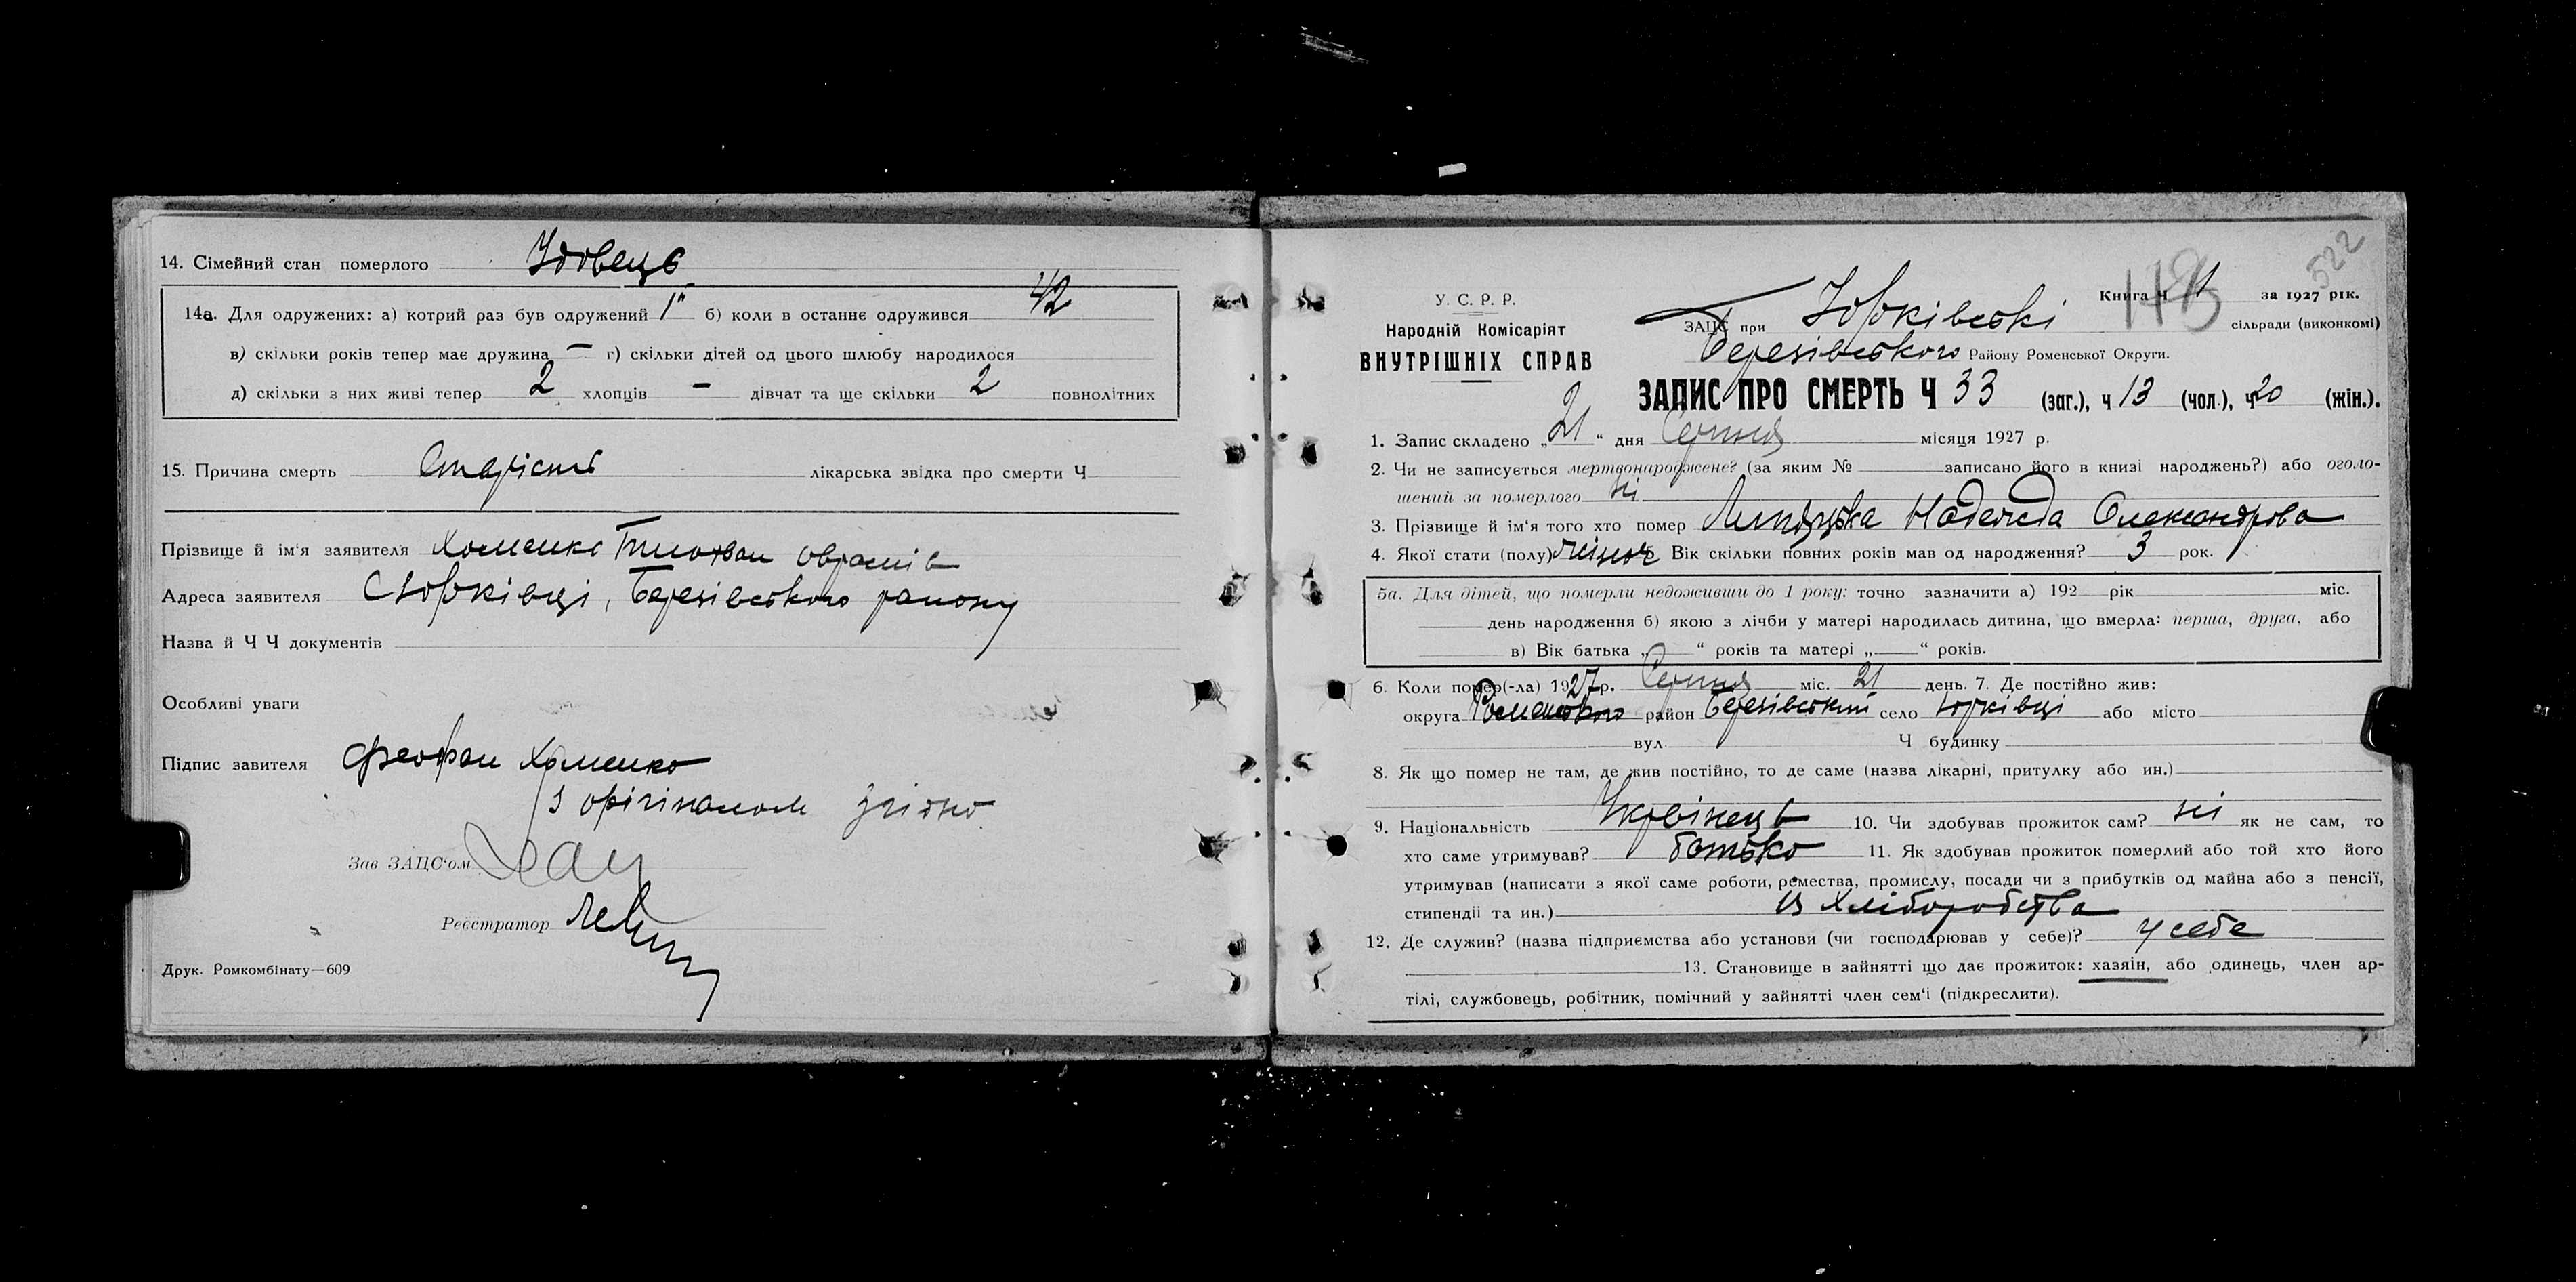 14. Сімейний стан померлого Удовець
14а. Для одружених: а) котрий раз був одружений 1" б) коли в останнє одружився 42
в) скільки років тепер має дружина — г) скільки дітей од цього шлюбу народилося
д) скільки з них живі тепер 2 хлопців — дівчат та ще скільки 2 повнолітних
15. Причина смерть Старість лікарська звідка про смерти Ч
Прізвище й ім'я заявителя Хоменко Оврамів
Адреса заявителя С Юрківці, Березівського району
Назва й Ч Ч документів
Особливі уваги
Підпис завителя Феофан Хоменко
З орігіналом згідно
Зав ЗАЦС'ом
Реєстратор
Друк. Ромкомбінату—609
522
У. С. Р. Р.
Народній Комісаріят
ВНУТРІШНІХ СПРАВ
Книга Ч 1 за 1927 рік.
ЗАЦС при Юрківські сільради (виконкомі)
Березівського Району Роменської Округи.
ЗАПИС ПРО СМЕРТЬ Ч 33 (заг.), ч 13 (чол.), ч 20 (жін.).
1. Запис складено „21“ дня Серпня місяця 1927 р.
2. Чи не записується мертвонароджене? (за яким № записано його в книзі народжень?) або оголо-
шений за померлого ні
3. Прізвище й ім'я того хто помер Липицька Надежда Олександрова
4. Якої стати (полу) жіноч Вік скільки повних років мав од народження? 3 рок.
5а. Для дітей, що померли недоживши до 1 року: точно зазначити а) 192 рік міс.
день народження б) якою з лічби у матері народилась дитина, що вмерла: перша, друга, або
в) Вік батька „ “ років та матері „ “ років.
6. Коли помер(-ла) 1927р. Серпня міс. 21 день. 7. Де постійно жив:
округа Роменського район Березівський село Юрківці або місто
вул. Ч будинку
8. Як що помер не там, де жив постійно, то де саме (назва лікарні, притулку або ин.)
9. Національність Українець 10. Чи здобував прожиток сам? ні як не сам, то
хто саме утримував? батько 11. Як здобував прожиток померлий або той хто його
утримував (написати з якої саме роботи, ремества, промислу, посади чи з прибутків од майна або з пенсії,
стипендії та ин.) Із хліборобства
12. Де служив? (назва підприємства або установи (чи господарював у себе)? у себе
13. Становище в зайнятті що дає прожиток: хазяін, або одинець, член ар-
тілі, службовець, робітник, помічний у зайнятті член сем'і (підкреслити).